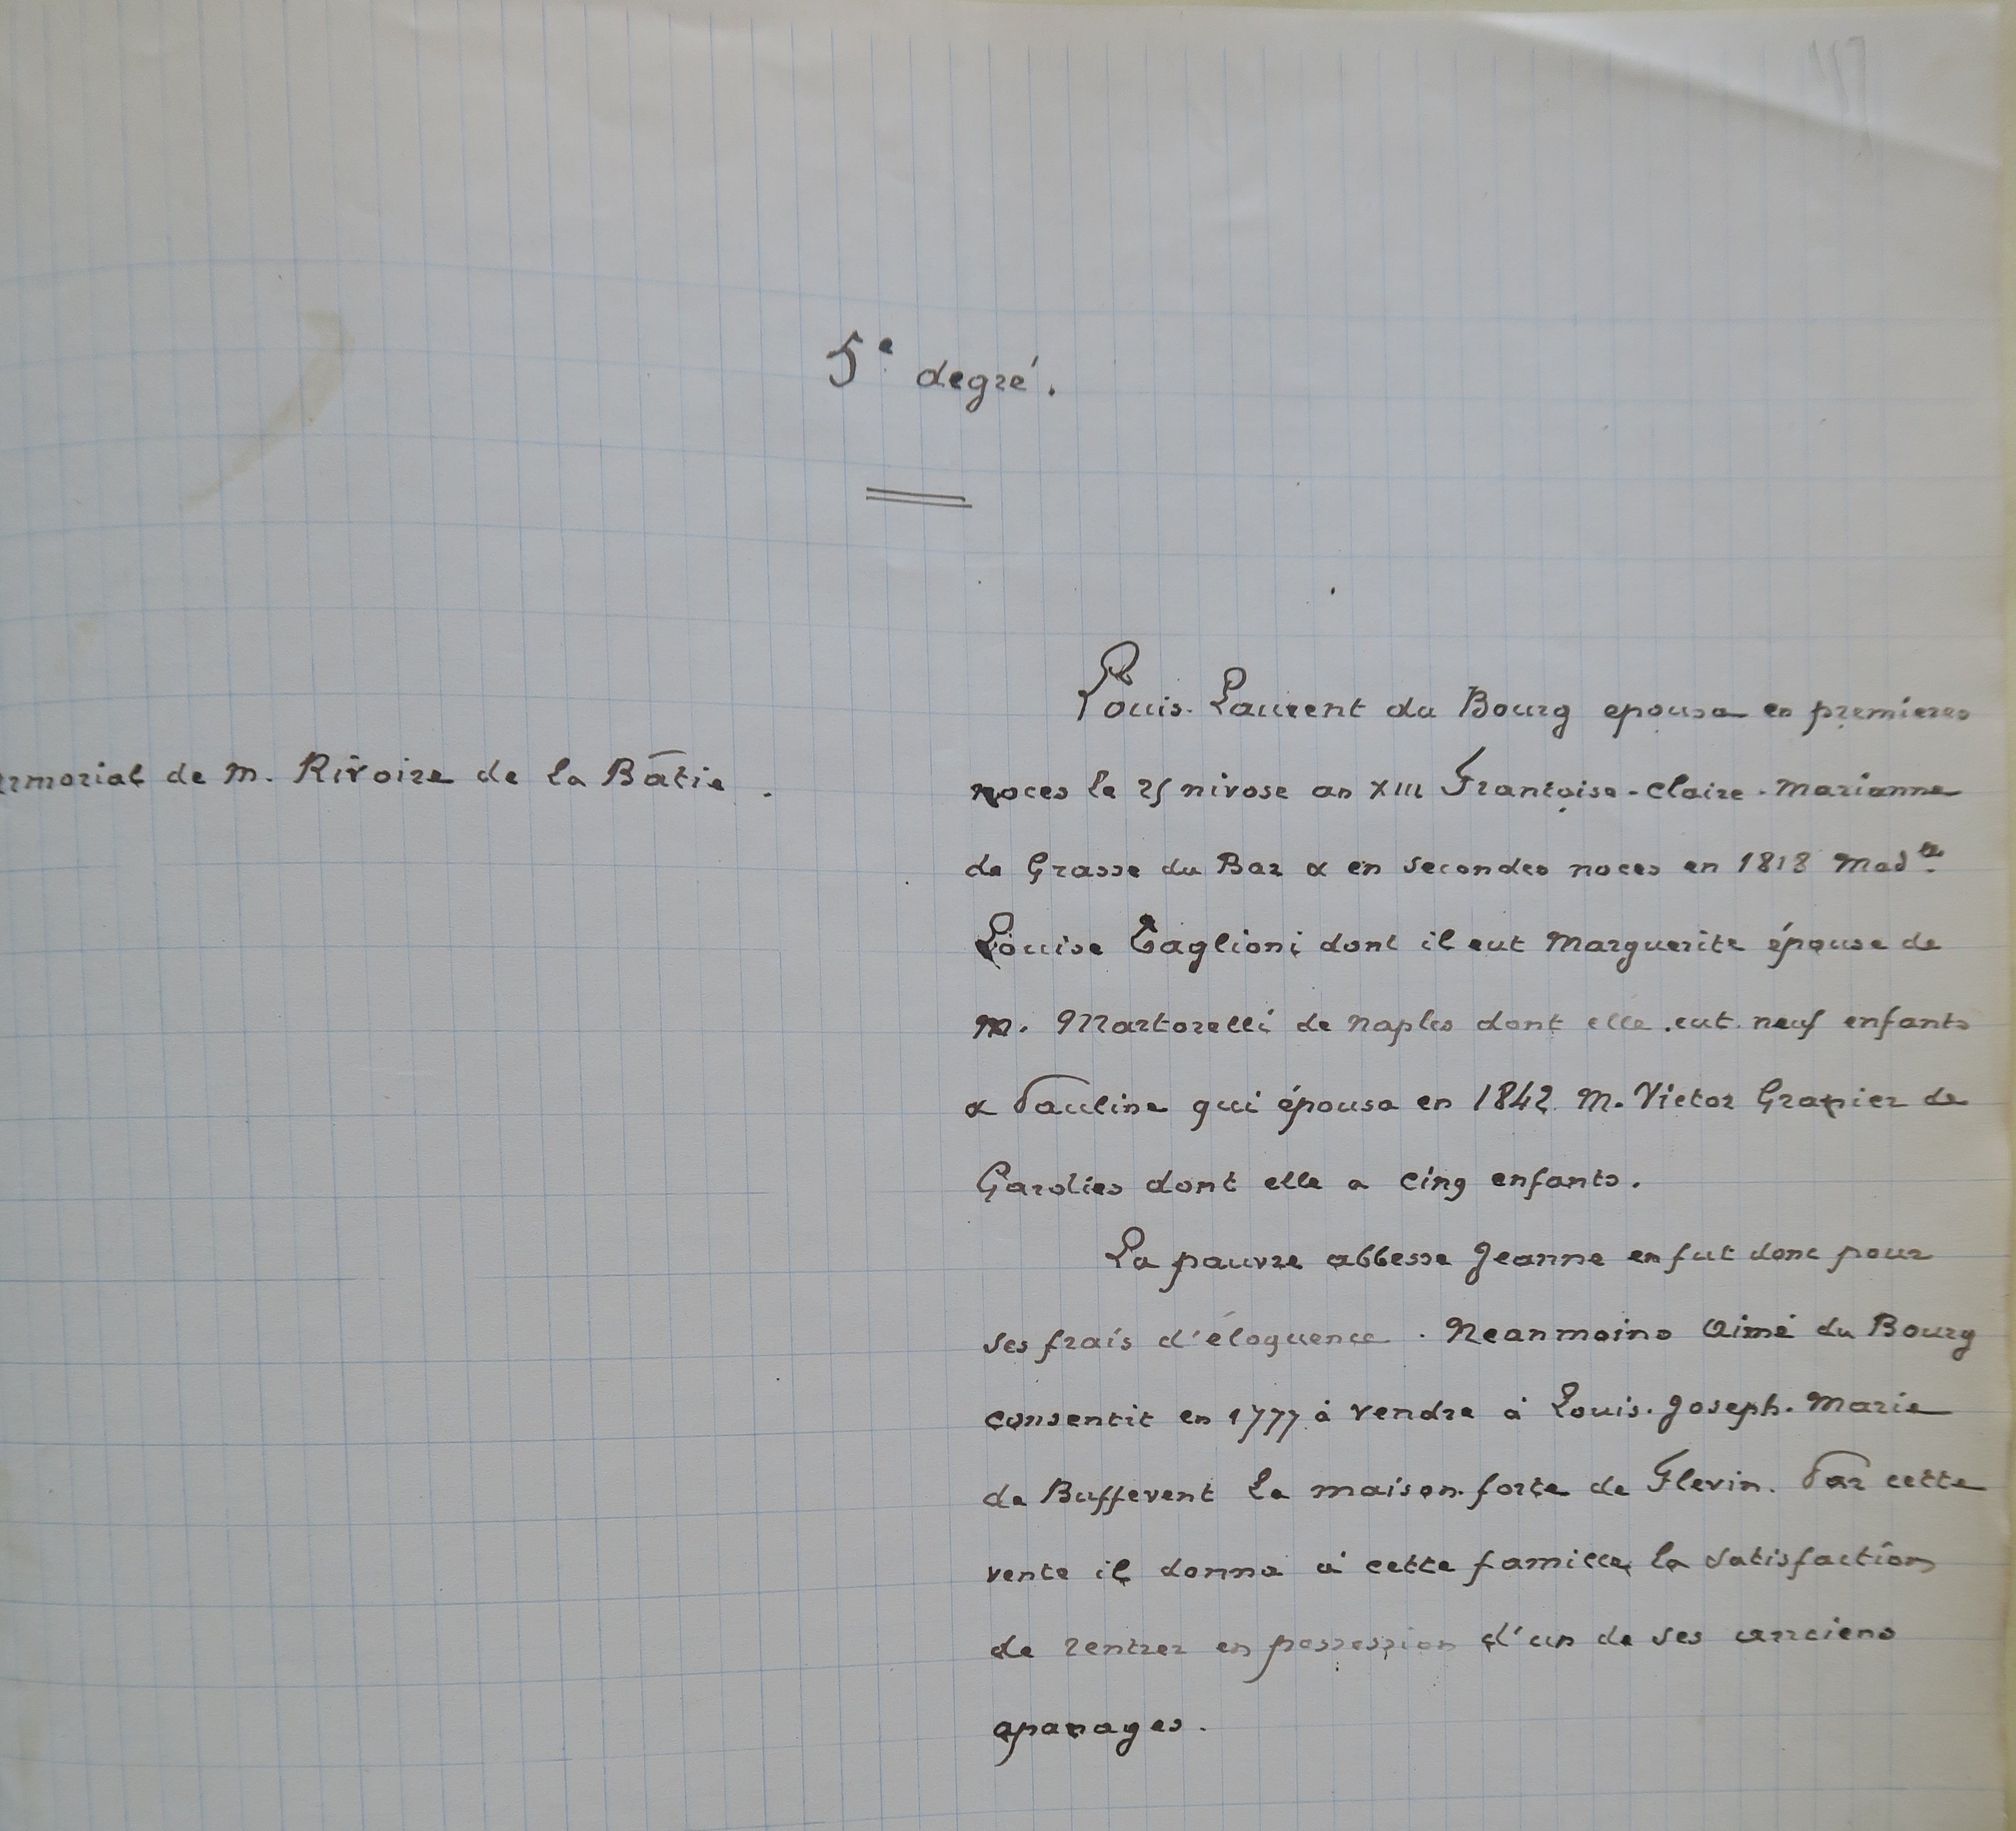 5e degré.
Louis-Laurent du Bourg epousa en premieres
armorial de M. Rivoire de la Bâtie.
noces le 25 nivose an XIII Françoise-Claire-Marianne
de Grasse du Bar & en secondes noces en 1818 Made.
Louise Taglioni dont il eut Marguerite épouse de
M. Martorelli de Naples dont elle eut neuf enfants
& Pauline qui épousa en 1842 M. Victor Granier de
Garolies dont elle a cinq enfants.
La pauvre abbesse Jeanne en fut donc pour
ses frais d'éloquence. Neanmoins Aimé du Bourg
consentit en 1777 à vendre à Louis-Joseph-Marie
de Buffevent la maison-forte de Flevin. Par cette
vente il donna à cette famille, la satisfaction
de rentrer en possession d'un de ses anciens
apanages.